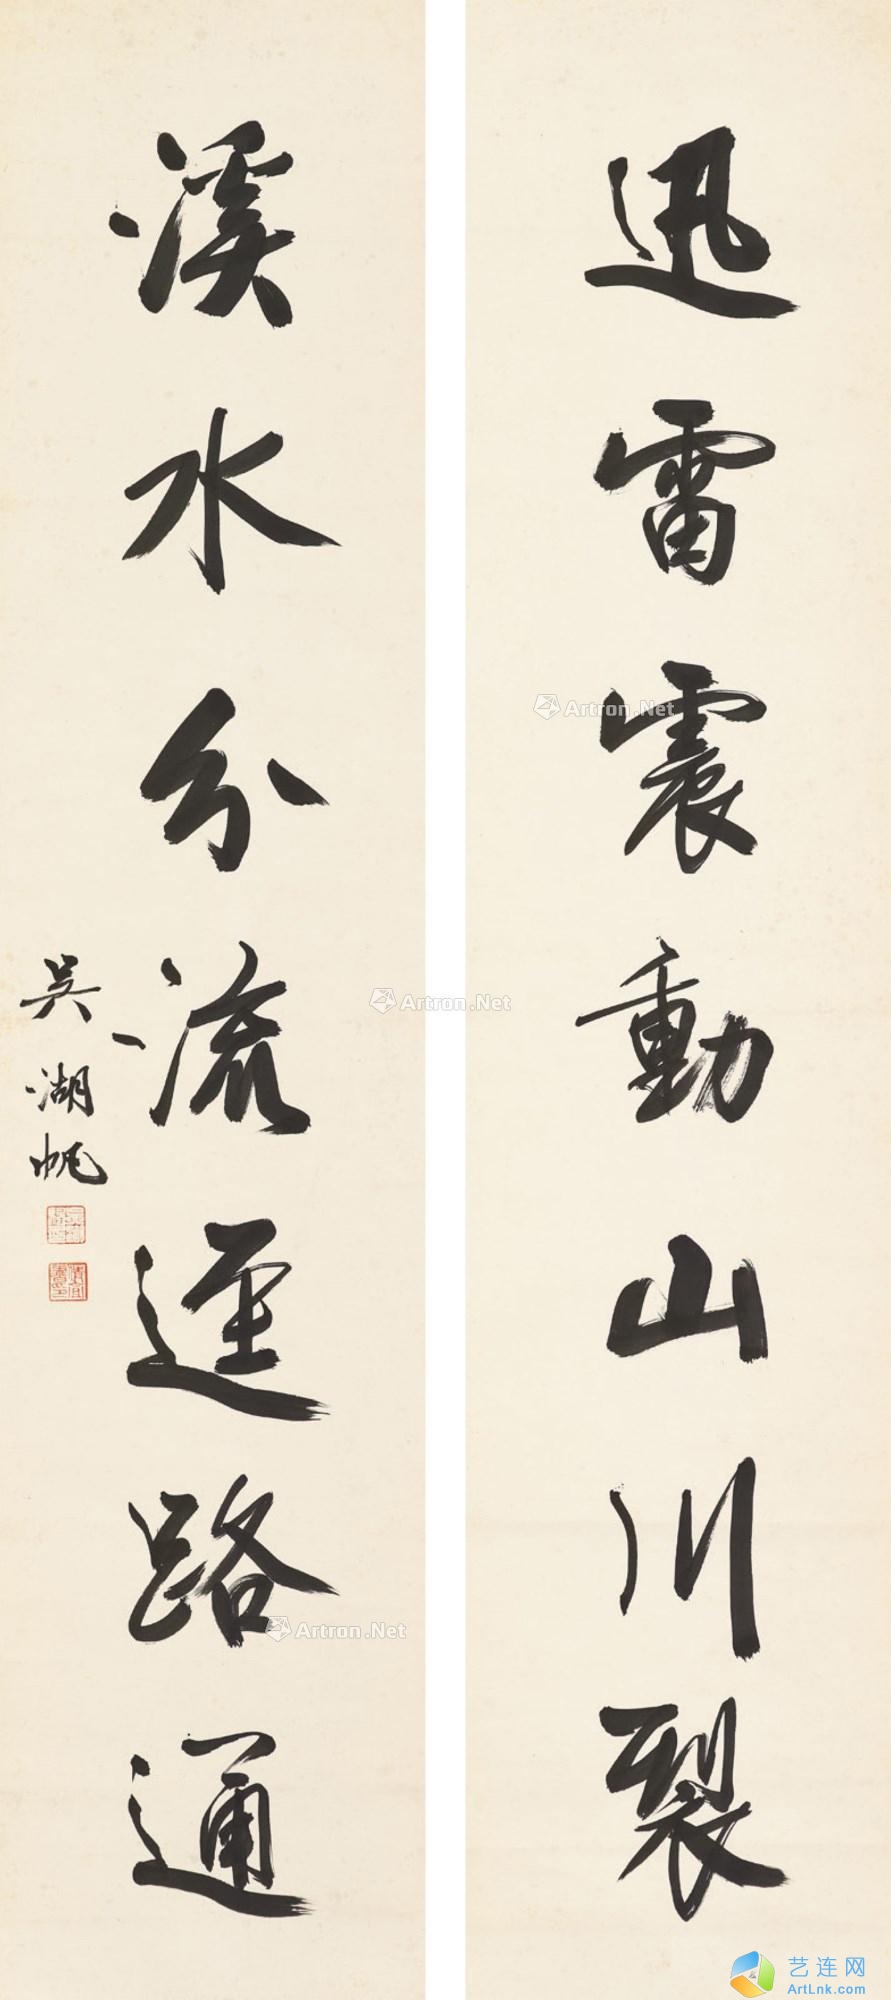 迅雷震動山川裂
溪水分流逕路通
吳湖帆
Artron.Net
Artron.Net
Artron.Net
艺连网
ArtLnk.com